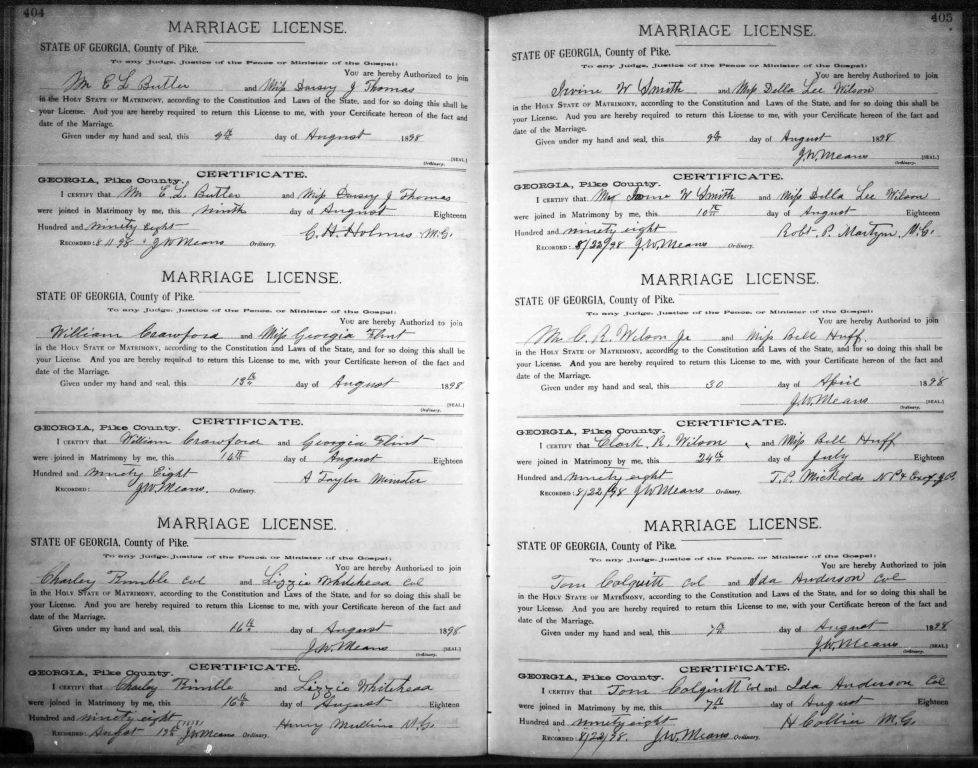 404
MARRIAGE LICENSE.
STATE OF GEORGIA, County of Pike.
To any Judge, Justice of the Peace or Minister of the Gospel:
You are hereby Authorized to join
Mr E L Butler and Miss Daisy J Thomas
in the HOLY STATE OF MATRIMONY, according to the Constitution and Laws of the State, and for so doing this shall be
your License. And you are hereby required to return this License to me, with your Certificate hereon of the fact and
date of the Marriage.
Given under my hand and seal, this 9th day of August 1898
[SEAL.]
Ordinary.
CERTIFICATE.
GEORGIA, Pike County.
I CERTIFY that Mr E. L. Butler and Miss Daisy J Thomas
were joined in Matrimony by me, this ninth day of August Eighteen
Hundred and ninety eight C. H. Holmes M.G.
RECORDED: 8 11 98 J W Means Ordinary.
MARRIAGE LICENSE.
STATE OF GEORGIA, County of Pike.
To any Judge, Justice of the Peace, or Minister of the Gospel:
You are hereby Authorized to join
William Crawford and Miss Georgia Flint
in the HOLY STATE OF MATRIMONY, according to the Constitution and Laws of the State, and for so doing this shall be
your License. And you are hereby required to return this License to me, with your Certificate hereon of the fact and
date of the Marriage.
Given under my hand and seal, this 13th day of August 1898
[SEAL.]
Ordinary.
CERTIFICATE.
GEORGIA, Pike County.
I CERTIFY that William Crawford and Georgia Flint
were joined in Matrimony by me, this 14th day of August Eighteen
Hundred and Ninety Eight A Taylor Minister
RECORDED: J W Means. Ordinary.
MARRIAGE LICENSE.
STATE OF GEORGIA, County of Pike.
To any Judge, Justice of the Peace, or Minister of the Gospel:
You are hereby Authorized to join
Charley Trimble Col and Lizzie Whitehead Col
in the HOLY STATE OF MATRIMONY, according to the Constitution and Laws of the State, and for so doing this shall be
your License. And you are hereby required to return this License to me, with your Certificate hereon of the fact and
date of the Marriage.
Given under my hand and seal, this 16th day of August 1898
J. W. Means [SEAL.]
Ordinary.
CERTIFICATE.
GEORGIA, Pike County.
I CERTIFY that Charley Trimble and Lizzie Whitehead
were joined in Matrimony by me, this 16th day of August Eighteen
Hundred and ninety eight Henry Mullins M.G.
RECORDED: August J W Means Ordinary.
405
MARRIAGE LICENSE.
STATE OF GEORGIA, County of Pike.
To any Judge, Justice of the Peace or Minister of the Gospel:
You are hereby Authorized to join
Irvine W Smith and Miss Della Lee Wilson
in the HOLY STATE OF MATRIMONY, according to the Constitution and Laws of the State, and for so doing this shall be
your License. And you are hereby required to return this License to me, with your Certificate hereon of the fact and
date of the Marriage.
Given under my hand and seal, this 9th day of August 1898
J W Means [SEAL.]
Ordinary.
CERTIFICATE.
GEORGIA, Pike County.
I CERTIFY that W Smith and Miss Della Lee Wilson
were joined in Matrimony by me, this 10th day of August Eighteen
Hundred and ninety eight Robt. P. Martyn, M.G.
RECORDED: 8/22/98 J. W. Means Ordinary.
MARRIAGE LICENSE.
STATE OF GEORGIA, County of Pike.
To any Judge, Justice of the Peace, or Minister of the Gospel:
You are hereby Authorized to join
Mr C. R. Wilson Jr and Miss Bell Huff
in the HOLY STATE OF MATRIMONY, according to the Constitution and Laws of the State, and for so doing this shall be
your License. And you are hereby required to return this License to me, with your Certificate hereon of the fact and
date of the Marriage.
Given under my hand and seal, this 30 day of April 1898
J. W. Means [SEAL.]
Ordinary.
CERTIFICATE.
GEORGIA, Pike County.
I CERTIFY that Clark R. Wilson and Miss Bell Huff
were joined in Matrimony by me, this 24th day of July Eighteen
Hundred and ninety eight T. P. N P & Exof. J.P.
RECORDED: 8/22/98 J W Means Ordinary.
MARRIAGE LICENSE.
STATE OF GEORGIA, County of Pike.
To any Judge, Justice of the Peace, or Minister of the Gospel:
You are hereby Authorized to join
Tom Colquitt Col and Ida Anderson Col
in the HOLY STATE OF MATRIMONY, according to the Constitution and Laws of the State, and for so doing this shall be
your License. And you are hereby required to return this License to me, with your Certificate hereon of the fact and
date of the Marriage.
Given under my hand and seal, this 7th day of August 1898
J. W. Means [SEAL.]
Ordinary.
CERTIFICATE.
GEORGIA, Pike County.
I CERTIFY that Tom Colquitt Col and Ida Anderson Col
were joined in Matrimony by me, this 7th day of August Eighteen
Hundred and Ninety eight H Collier M.G.
RECORDED: 8/22/98. J. W. Means Ordinary.